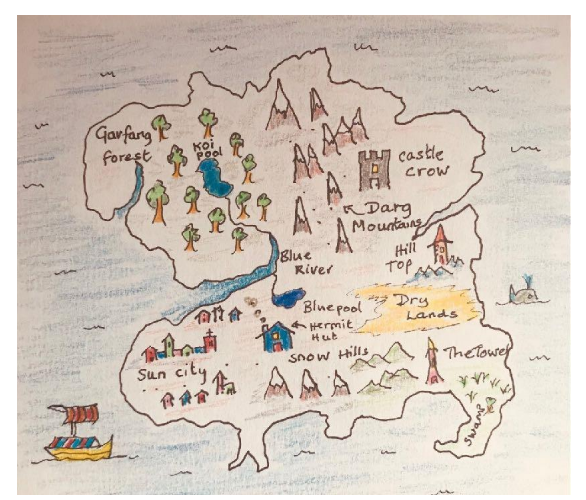 Garfang
forest
Koi
Pool
Castle
Crow
Darg
Mountains
Hill
Top
Blue
River
Bluepool
Dry
Lands
Hermit
Hut
Snow Hills
The Tower
Sun City
Swamp